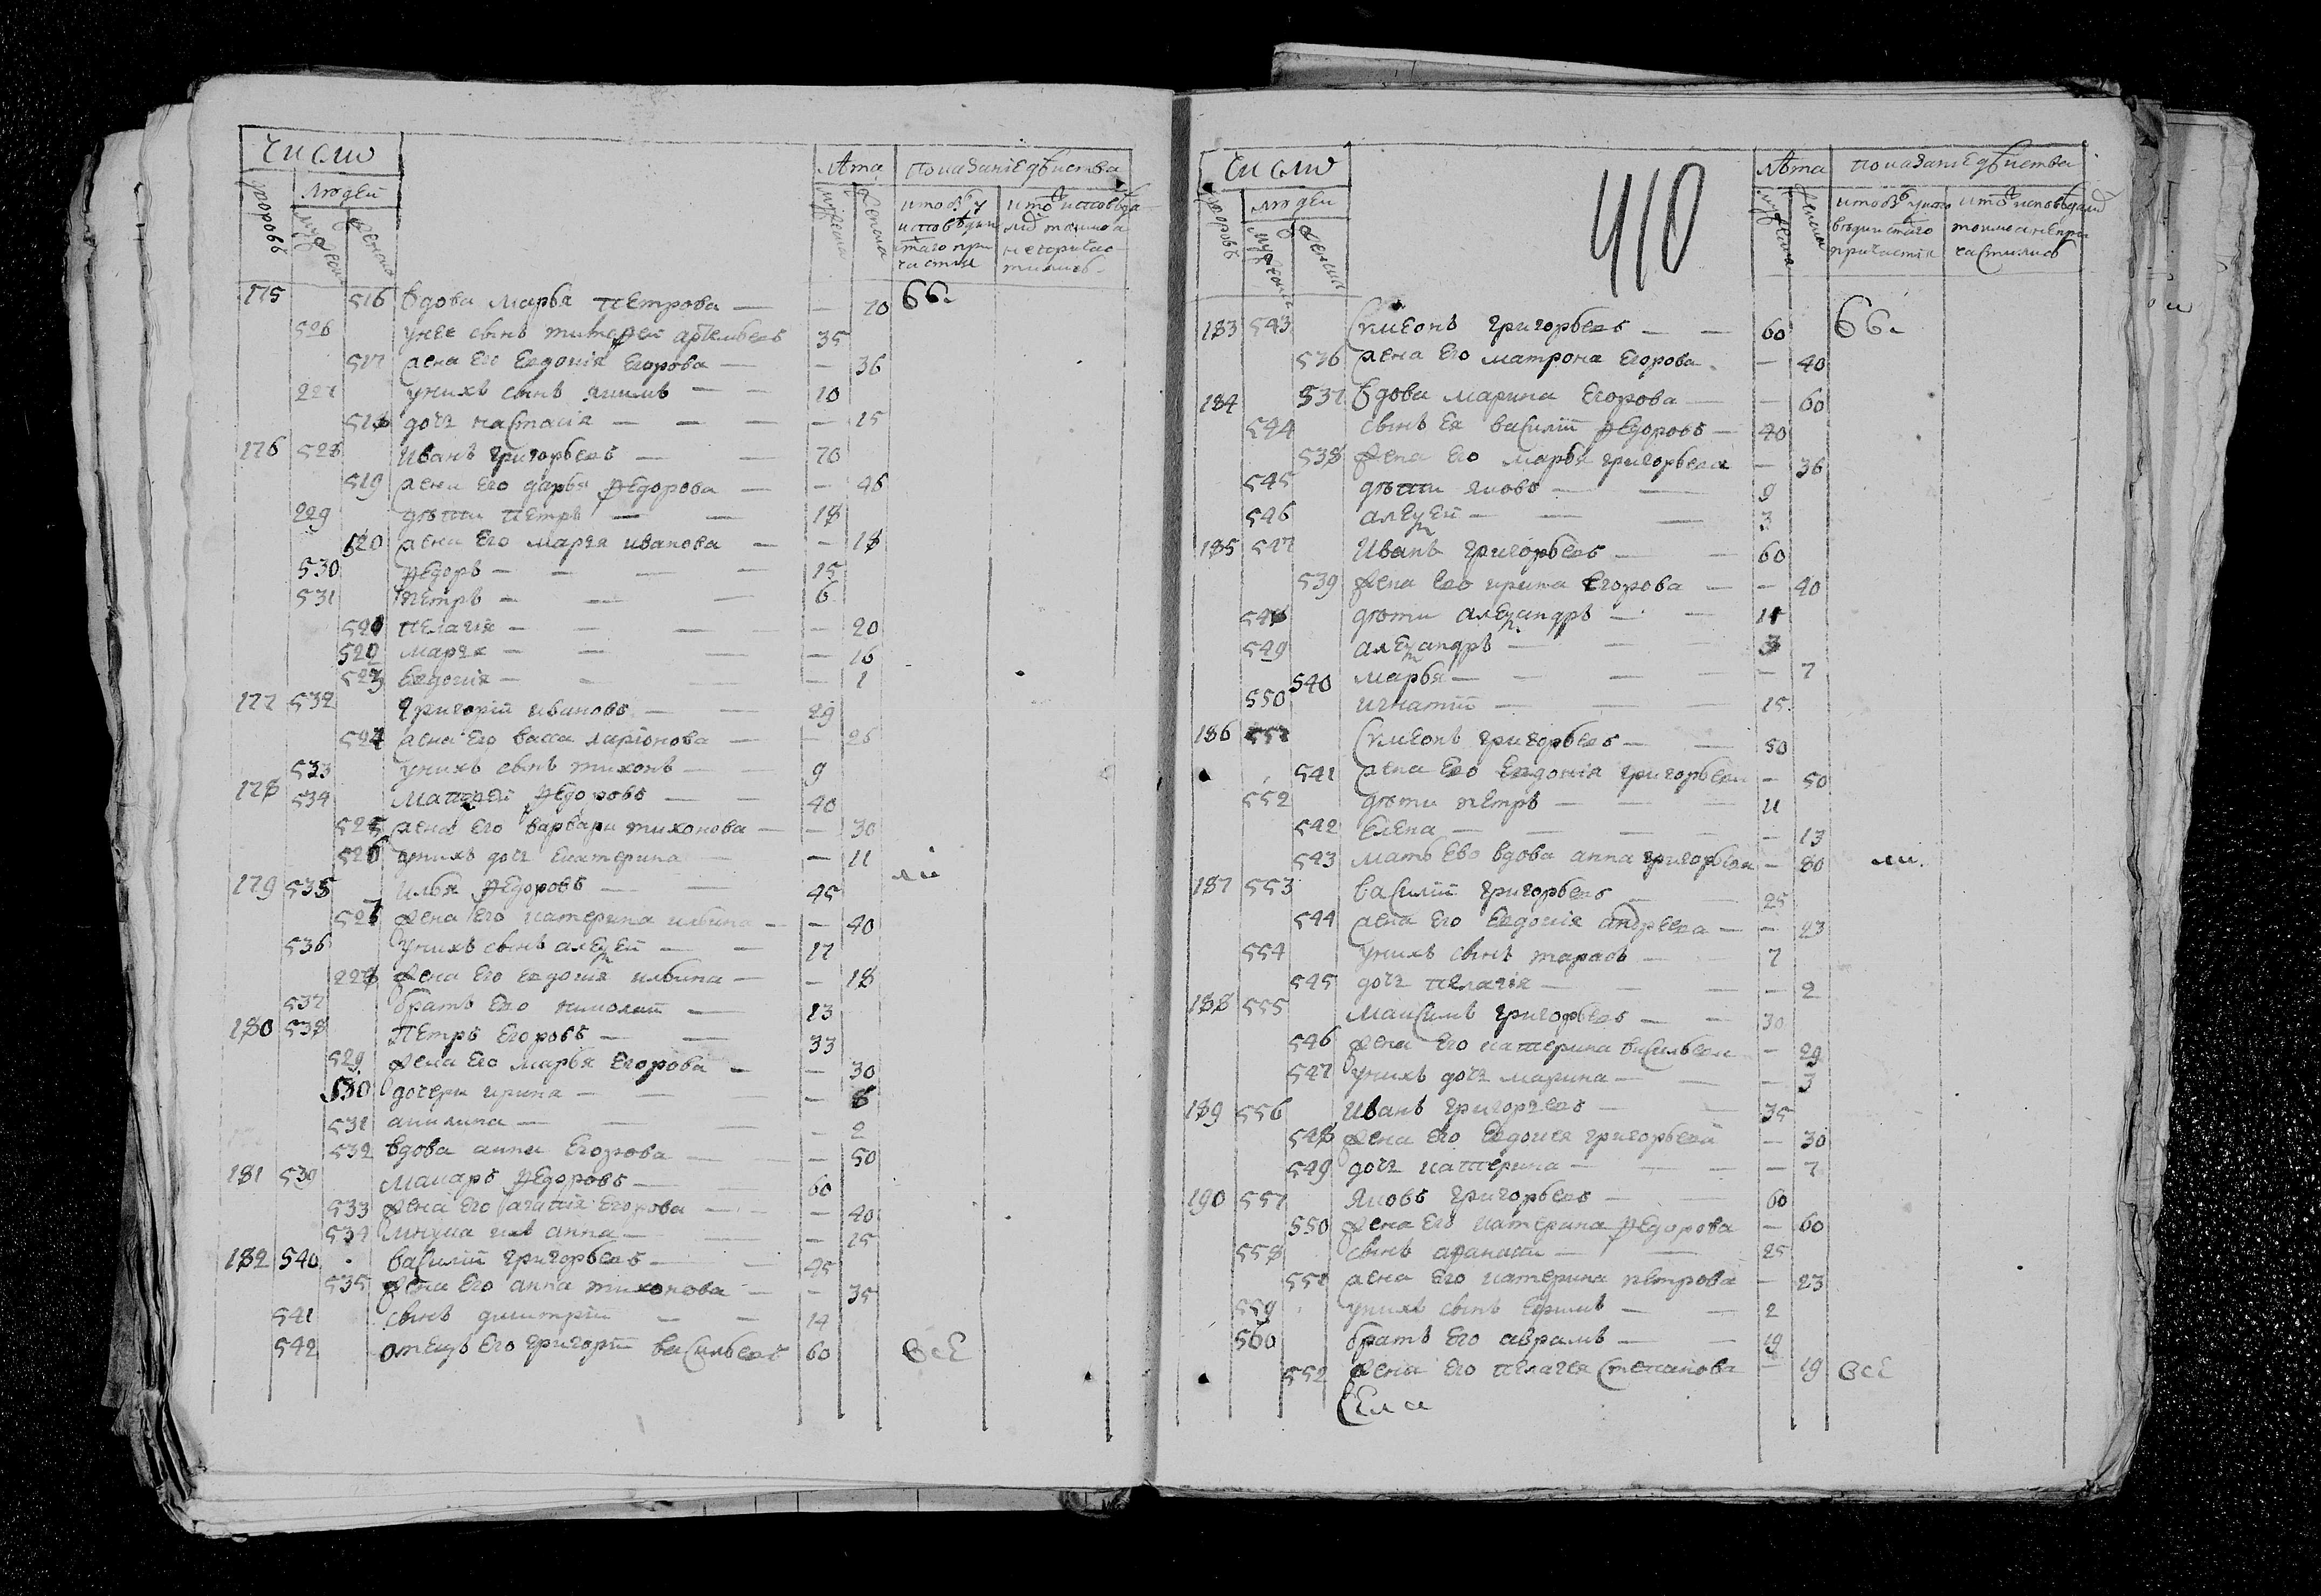 Число
Людей
лѣта
показаніе дѣйства
дворовъ
мужеска
женска
мужеска
женска
175 516 вдова марья петрова — — 70 бы
526 у нее сынъ тимофей артемьевъ 35
517 жена его евдокія егорова — — 36
227 у нихъ сынъ якимъ — — 10
518 дочь настасія — — — — 15
176 528 иванъ григорьевъ — — 70
519 жена его дарья федорова — — 46
229 дѣти петръ — — 18
520 жена его марья иванова — — 18
530 федоръ — — — — 15
531 петръ — — — 6
521 пелагія — — — — 20
522 марья — — — — 16
523 евдокія — — — — 1
177 532 григорій ивановъ — — 29
524 жена его васса ларіонова — — 26
533 у нихъ сынъ тихонъ — 9
178 534 матфей федоровъ — — 40
525 жена его варвара тихонова — — 30
526 у нихъ дочь екатерина — — 11
179 535 илья федоровъ — — 45
526 жена его катерина ильина — — 40
536 у нихъ сынъ алексей — — 17
228 жена его евдокія ильина — — 18
537 братъ его николай — 13
180 538 петръ егоровъ — — 33
529 жена его марья егорова — — 30
530 дочери ирина — — — — 6
531 акилина — — — — 2
532 вдова анна егорова — — — 50
181 539 макаръ федоровъ — 60
533 жена его агапія егорова — — — 40
534 анна — — — 15
182 540 василій григорьевъ — — 45
535 жена его анна тихонова — — 35
541 сынъ димитрій — — 14
542 отецъ его григорій васильевъ 60 всѣ
Число
Людей
410
лѣта
показаніе дѣйства
дворовъ
мужеска
женска
мужеска
женска
183 543 симеонъ григорьевъ — — 60 бы
536 жена его матрона егорова — 40
184 537 вдова марина егорова — — 60
544 сынъ ея василій федоровъ — 40
538 жена его марья григорьева — 36
545 дѣти яковъ — — 9
546 алексей — — — 3
185 547 иванъ григорьевъ — — 60
539 жена ево ирина егорова — — 40
548 дѣти александръ — — 11
549 александръ — — — 3
540 марья — — — — — 7
550 игнатій — — — 15
186 551 симеонъ григорьевъ — — 50
541 жена ево евдокія григорьева — 50
552 дѣти петръ — — — 11
542 елена — — — — — 13
543 мать ево вдова анна григорьева — 80
187 553 василій григорьевъ — — 25
544 жена его евдокія андреева — — 23
554 у нихъ сынъ тарасъ — — 7
545 дочь пелагія — — — — 2
188 555 максимъ григорьевъ — — 30
546 жена его катерина васильева — 29
547 у нихъ дочь марина — — — 3
189 556 иванъ григорьевъ — — 35
548 жена его евдокія григорьева — 30
549 дочь катерина — — — — 7
190 557 яковъ григорьевъ — 60
550 жена его катерина федорова — 60
558 сынъ афанасій — — 25
551 жена его катерина петрова — 23
559 у нихъ сынъ ефимъ — — 2
560 братъ его аврамъ — — 19
552 жена его пелагея степанова — 19 всѣ
села